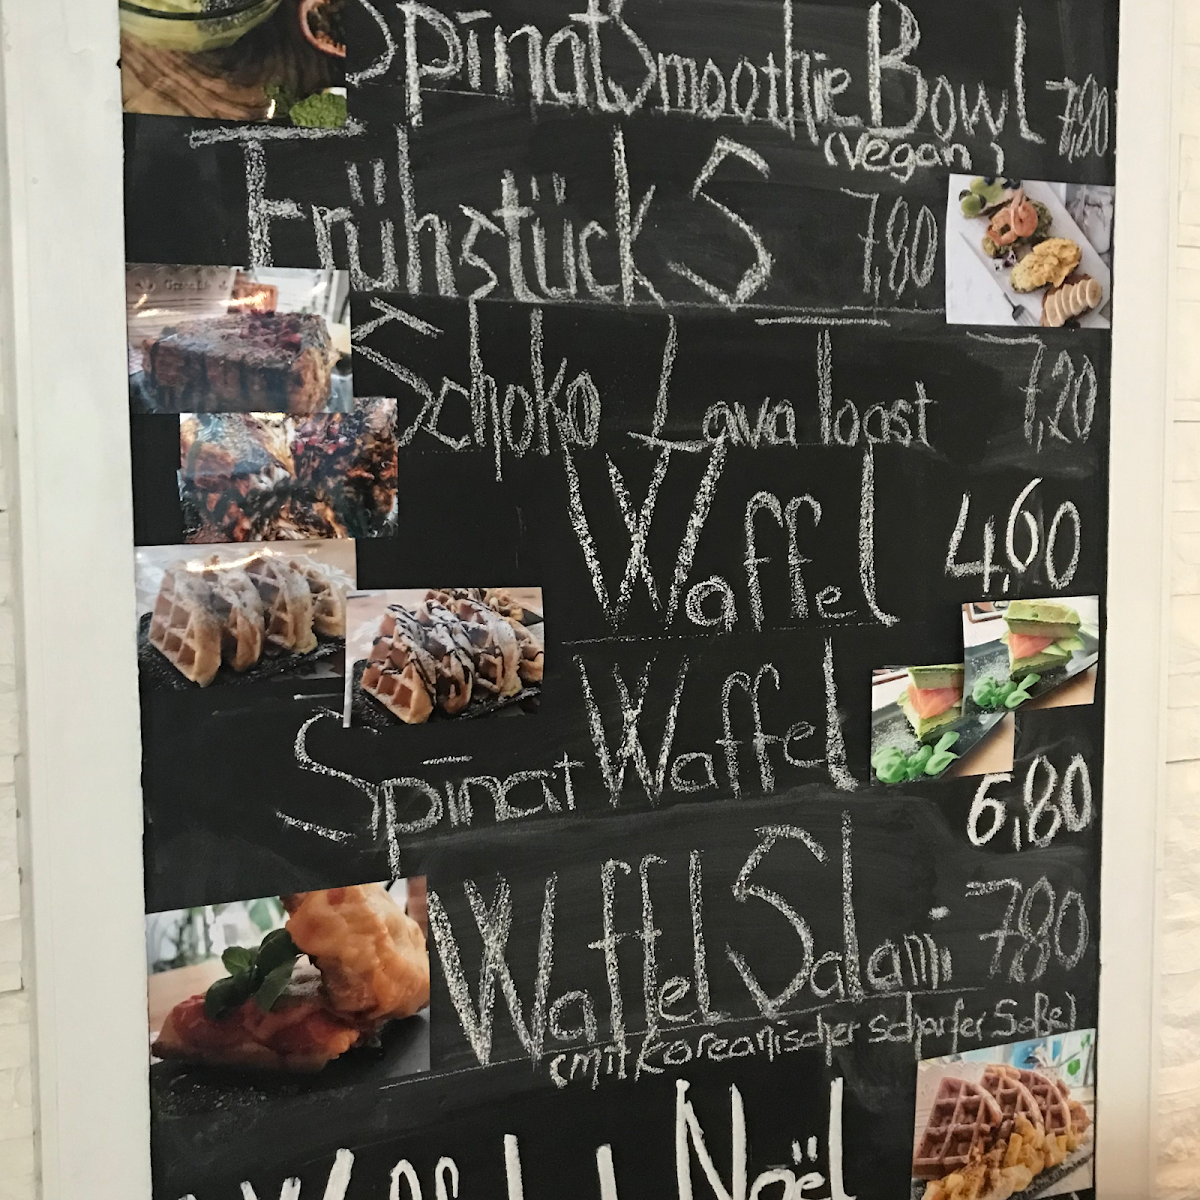 Spinat Smoothie Bowl 7,80
(vegan)
Frühstück S 7,80
Schoko Lava Toast 7,20
Waffel 4,60
Spinat Waffel 6,80
Waffel Salami 7,80
(mit Koreanischer scharfer Soße)
Waffel Noël